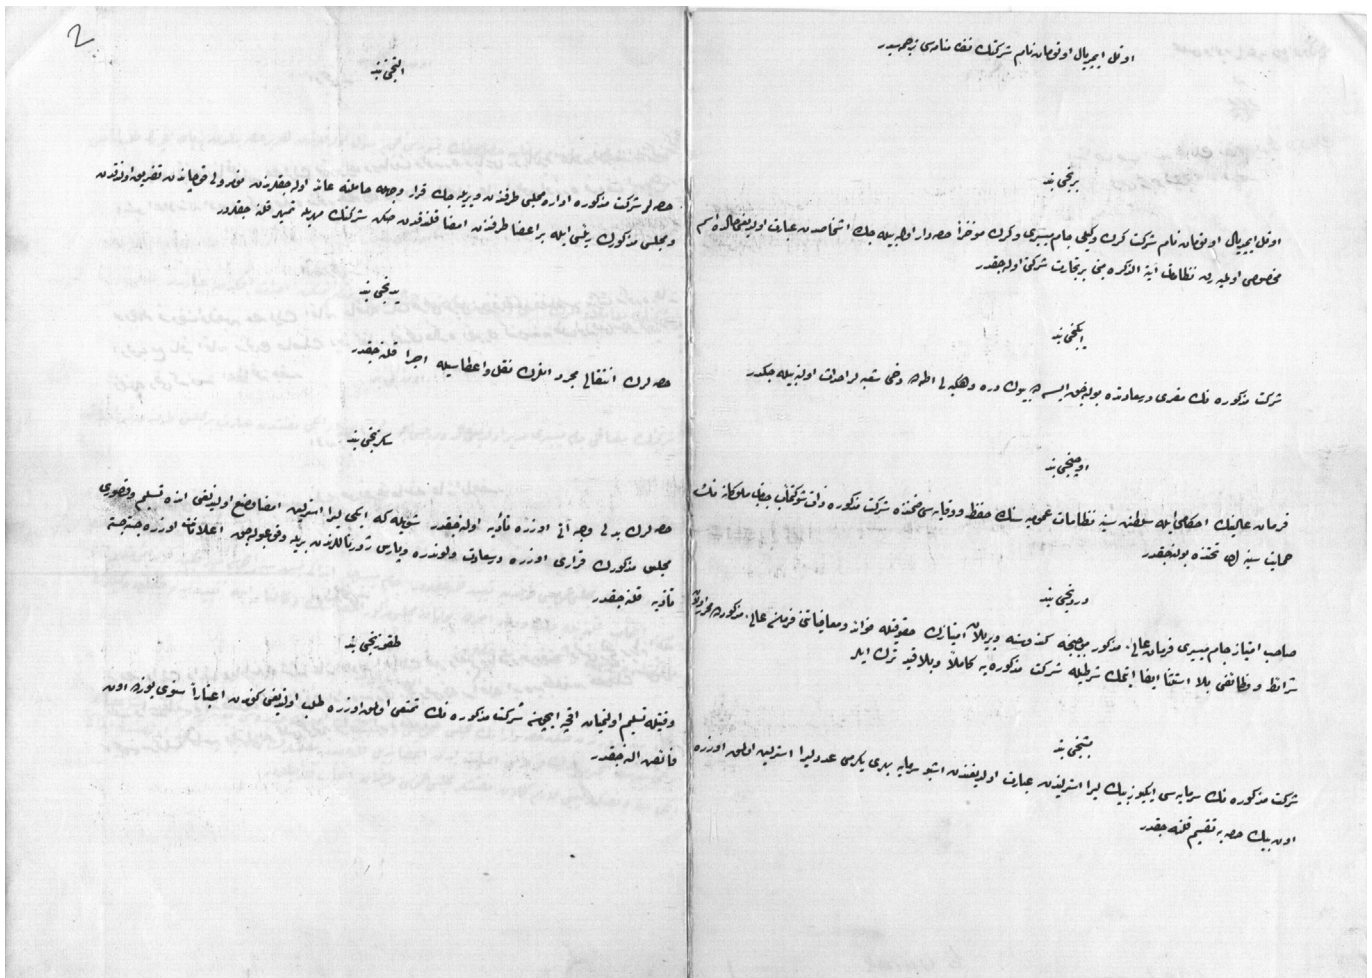 اوتل ايمپريال اوتومان نام شركتك نظامنامه‌سی ترجمه‌سيدر
برنجی بند
اوتل ايمپريال اوتومان نام شركت كرك وكيلی جام ميسيری وكرك مؤخراً حصه‌دار اوله‌بيله‌جك اشخاصدن عبارت اولديغی حالده اسم
مخصوصی اولميه‌رق نظامات آتية الذكره مبنی بر تجارت شركتی اوله‌جقدر
ايكنجی بند
شركت مذكوره‌نك مقری درسعادتده بوله‌جق ايسه‌ده بيوك دره وهيكه‌لی اطه‌ده دخی شعبه‌لر احداث اوله‌بيله‌جكدر
اوچنجی بند
فرمان عالينك احكامی ايله سلطنت سنيه نظامات عموميه‌سنك حفظ ووقايه‌سی ضمننده شركت مذكوره ذات شوكتمآب جناب ملوكانه‌نك
حمايت سنيه‌لری تحتنده بولنه‌جقدر
دردنجی بند
صاحب امتياز جام ميسيری فرمان عالی مذكور موجبنجه كندوسنه ويريلان امتيازك حقوقيله فوائد ومعافياتنی فرمان عالی مذكورده محرر اولان
شرائط و وظائفنی بلا استثنا ايفا ايتمك شرطيله شركت مذكوره‌يه كاملاً وبلا قيد ترك ايلر
بشنجی بند
شركت مذكوره‌نك سرمايه‌سی ايكيوز بيك ليرا استرليندن عبارت اولديغندن اشبو سرمايه بهری يكرمی عدد ليرا استرلين اولمق اوزره
اون بيك حصه‌يه تقسيم قلنه‌جقدر
2
التنجی بند
حصه‌لر شركت مذكوره اداره مجلسی طرفندن ويريله‌جك قرار وجهله حاملنه عائد اوله‌جقلرندن قوچانلی دفترندن تفريق اولندقدن
ومجلس مذكورك رئيسی ايله بر اعضا طرفندن امضا قلندقدن صكره شركتك مهريله تمهير قلنه‌جقلردر
يدنجی بند
حصه‌لرك انتقالی مجرد انلرك نقل واعطاسيله اجرا قلنه‌جقدر
سكزنجی بند
حصه‌لرك بدلی وجه آتی اوزره تأديه اولنه‌جقدر شويله‌كه ايكی ليرا استرلين امضا وضع اولنديغی انده تسليم وقصوری
مجلس مذكورك قراری اوزره درسعادت ولوندره وپارس ژورناللرندن بريله وقوعبوله‌جق اعلانات اوزره جسته جسته
تأديه قلنه‌جقدر
طقوزنجی بند
وقتيله تسليم اولنميان اقچه ايچون شركت مذكوره‌نك منفعتی اولمق اوزره طلب اولنديغی كوندن اعتباراً سنوی يوزده اون
فائض النه‌جقدر